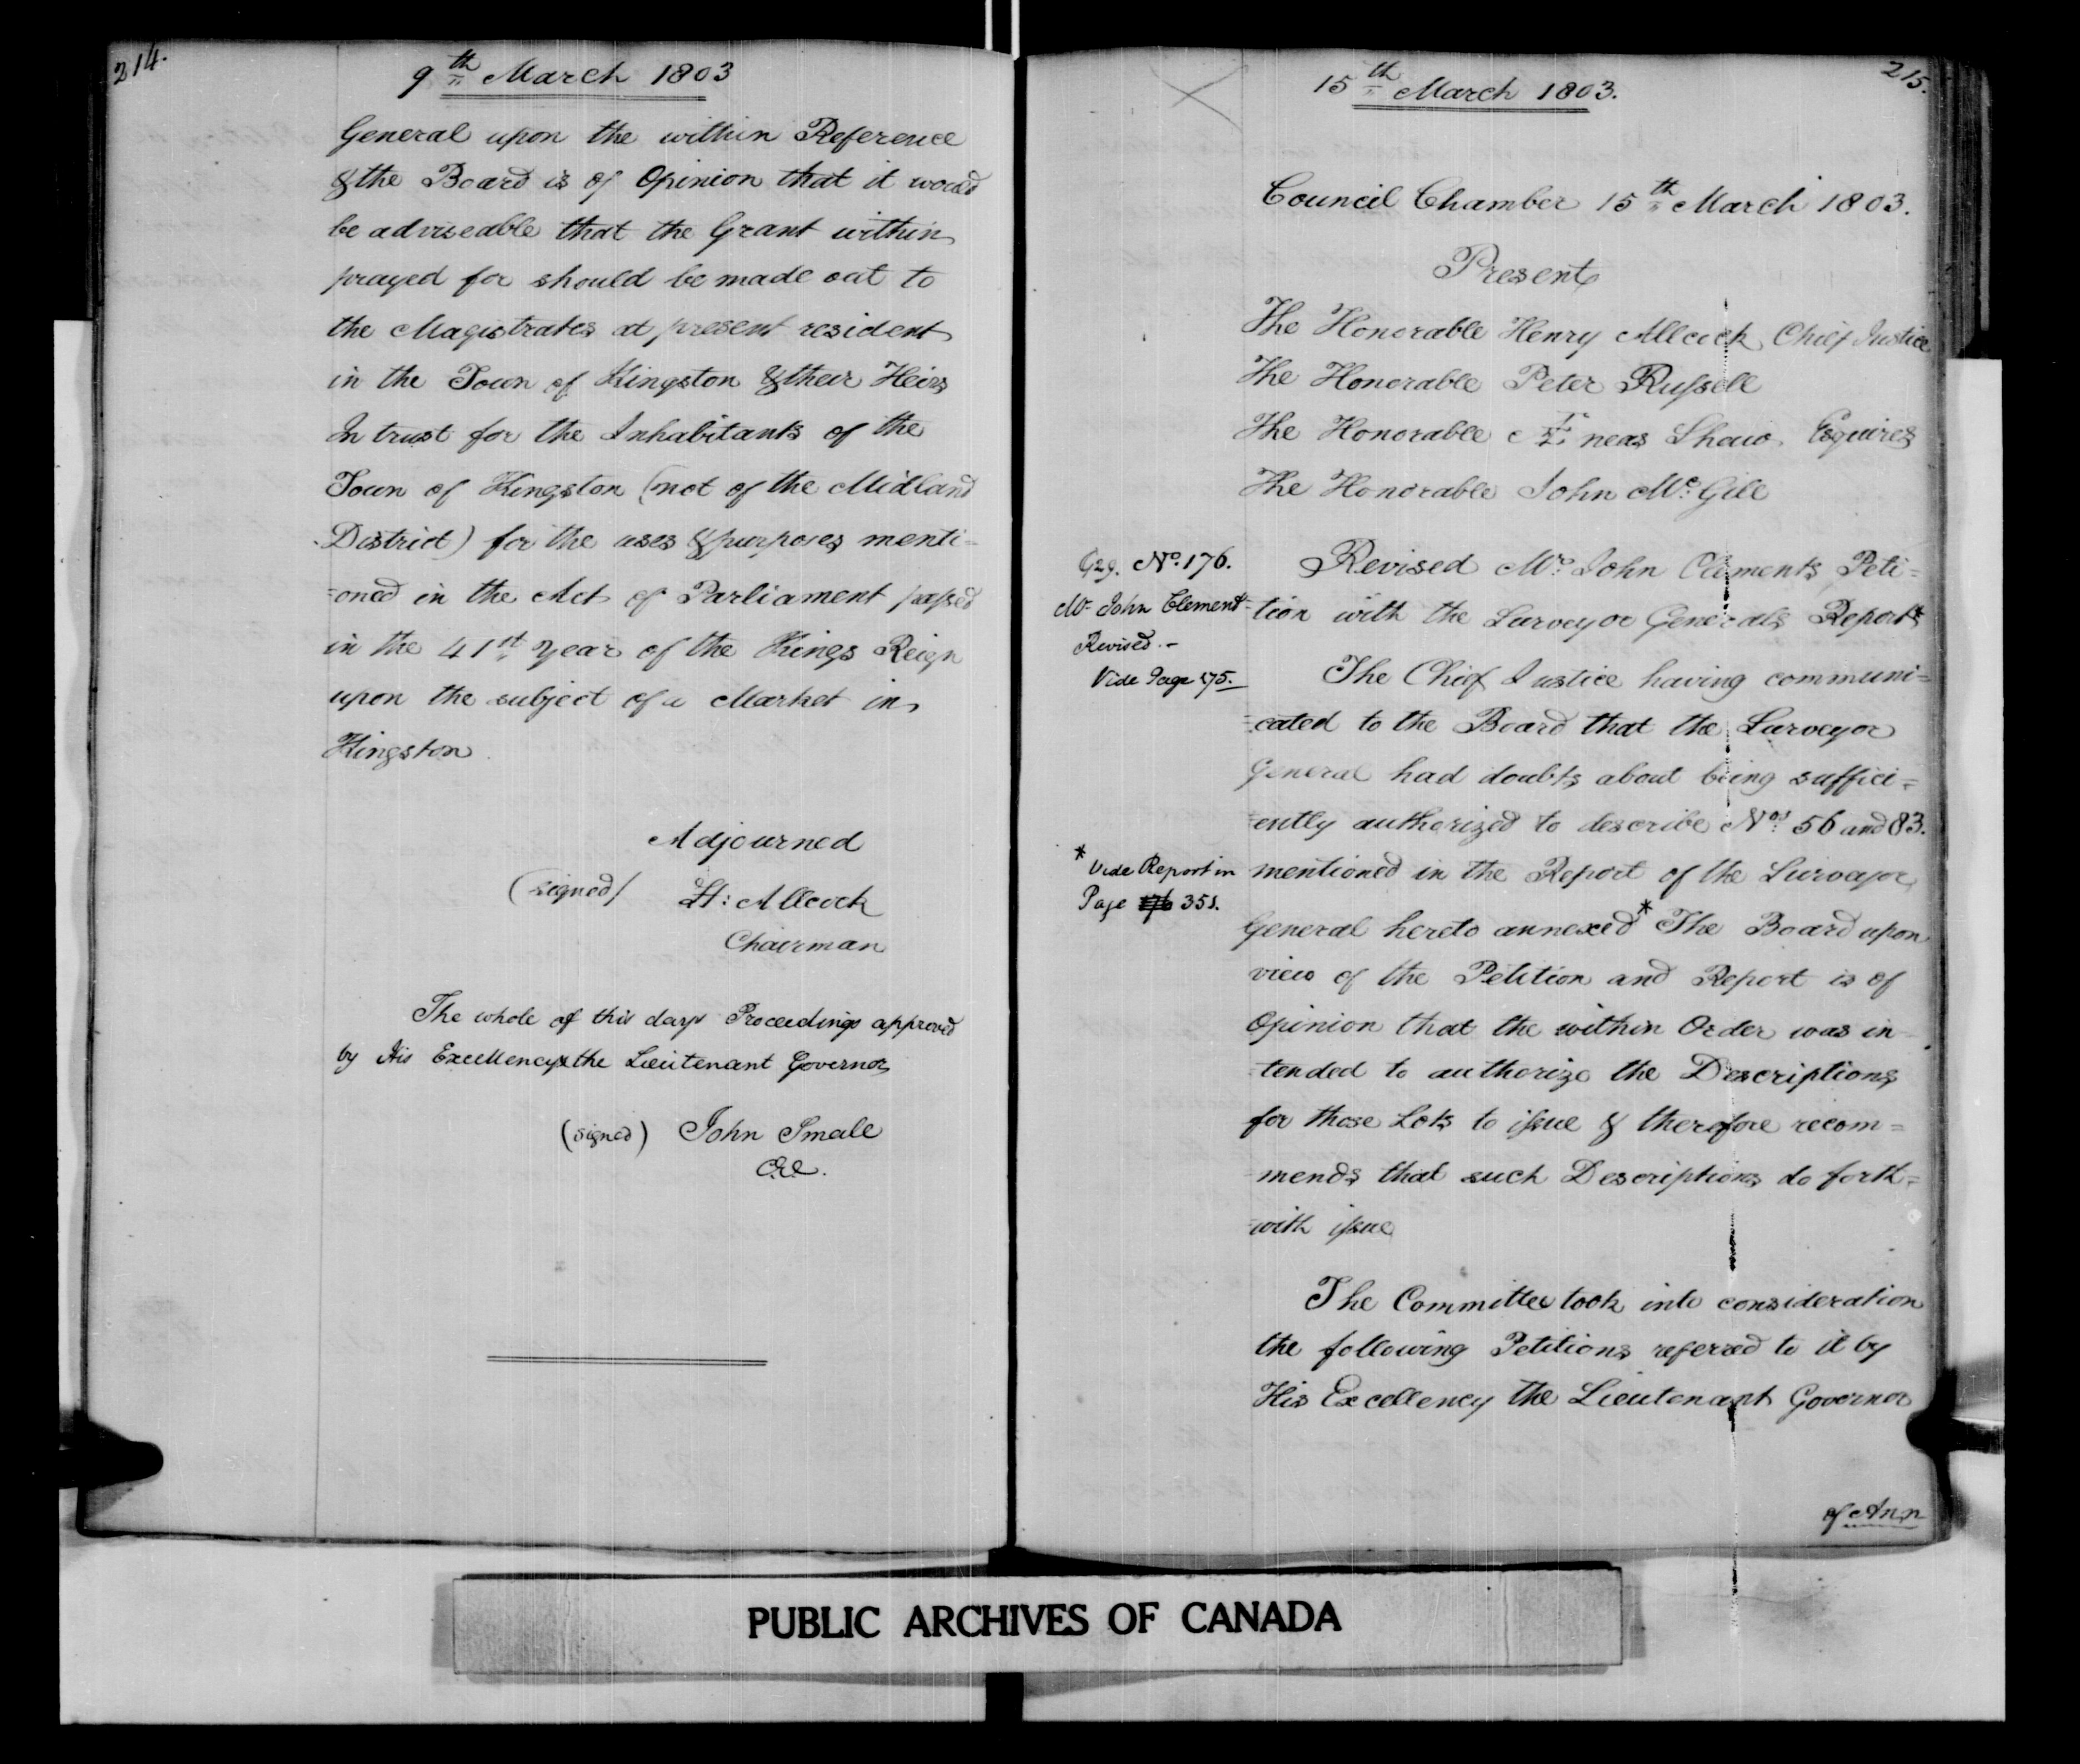 214.
9th March 1803
General upon the within Reference
& the Board is of Opinion that it would
be adviseable that the Grant within
prayed for should be made out to
the Magistrates at present resident
in the Town of Kingston & their Heirs
In trust for the Inhabitants of the
Town of Kingston (not of the Midland
District) for the uses & purposes menti=
=oned in the Act of Parliament passed
in the 41st Year of the Kings Reign
upon the subject of a Market in
Kingston
Adjourned
(signed) H: Allcock
Chairman
The whole of this days Proceedings approved
by His Excellency the Lieutenant Governor
(signed) John Small
C.E.C.
215.
15th March 1803.
Council Chamber 15th March 1803.
Present
The Honorable Henry Allcock Chief Justice
The Honorable Peter Russell
The Honorable Æneas Shaw Esquires
The Honorable John McGill
No. 176.
Mr John Clement
Revised.-
Vide Page 175.
Revised Mr. John Clements Peti=
tion with the Surveyor Generals Report*
The Chief Justice having communi=
=cated to the Board that the Surveyor
General had doubts about being suffici=
=ently authorized to describe Nos 56 and 83.
mentioned in the Report of the Surveyor
* Vide Report in
Page 176 351.
General hereto annexed* The Board upon
view of the Petition and Report is of
Opinion that the within Order was in
tended to authorize the Descriptions
for those Lots to issue & therefore recom=
mends that such Descriptions do forth=
=with issue
The Committee took into consideration
the following Petitions referred to it by
His Excellency the Lieutenant Governor
of Ann
PUBLIC ARCHIVES OF CANADA